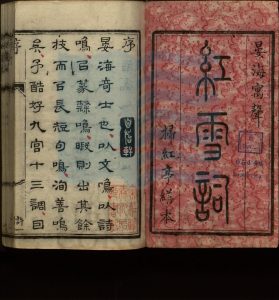 晏海寓聲
紅雪詞
紅亭繕本
序
晏海奇士也以文鳴以詩
鳴㠯篆隸鳴暇則出其餘
技而㠯長短句鳴洵善鳴
矣予酷好九宮十三調
序